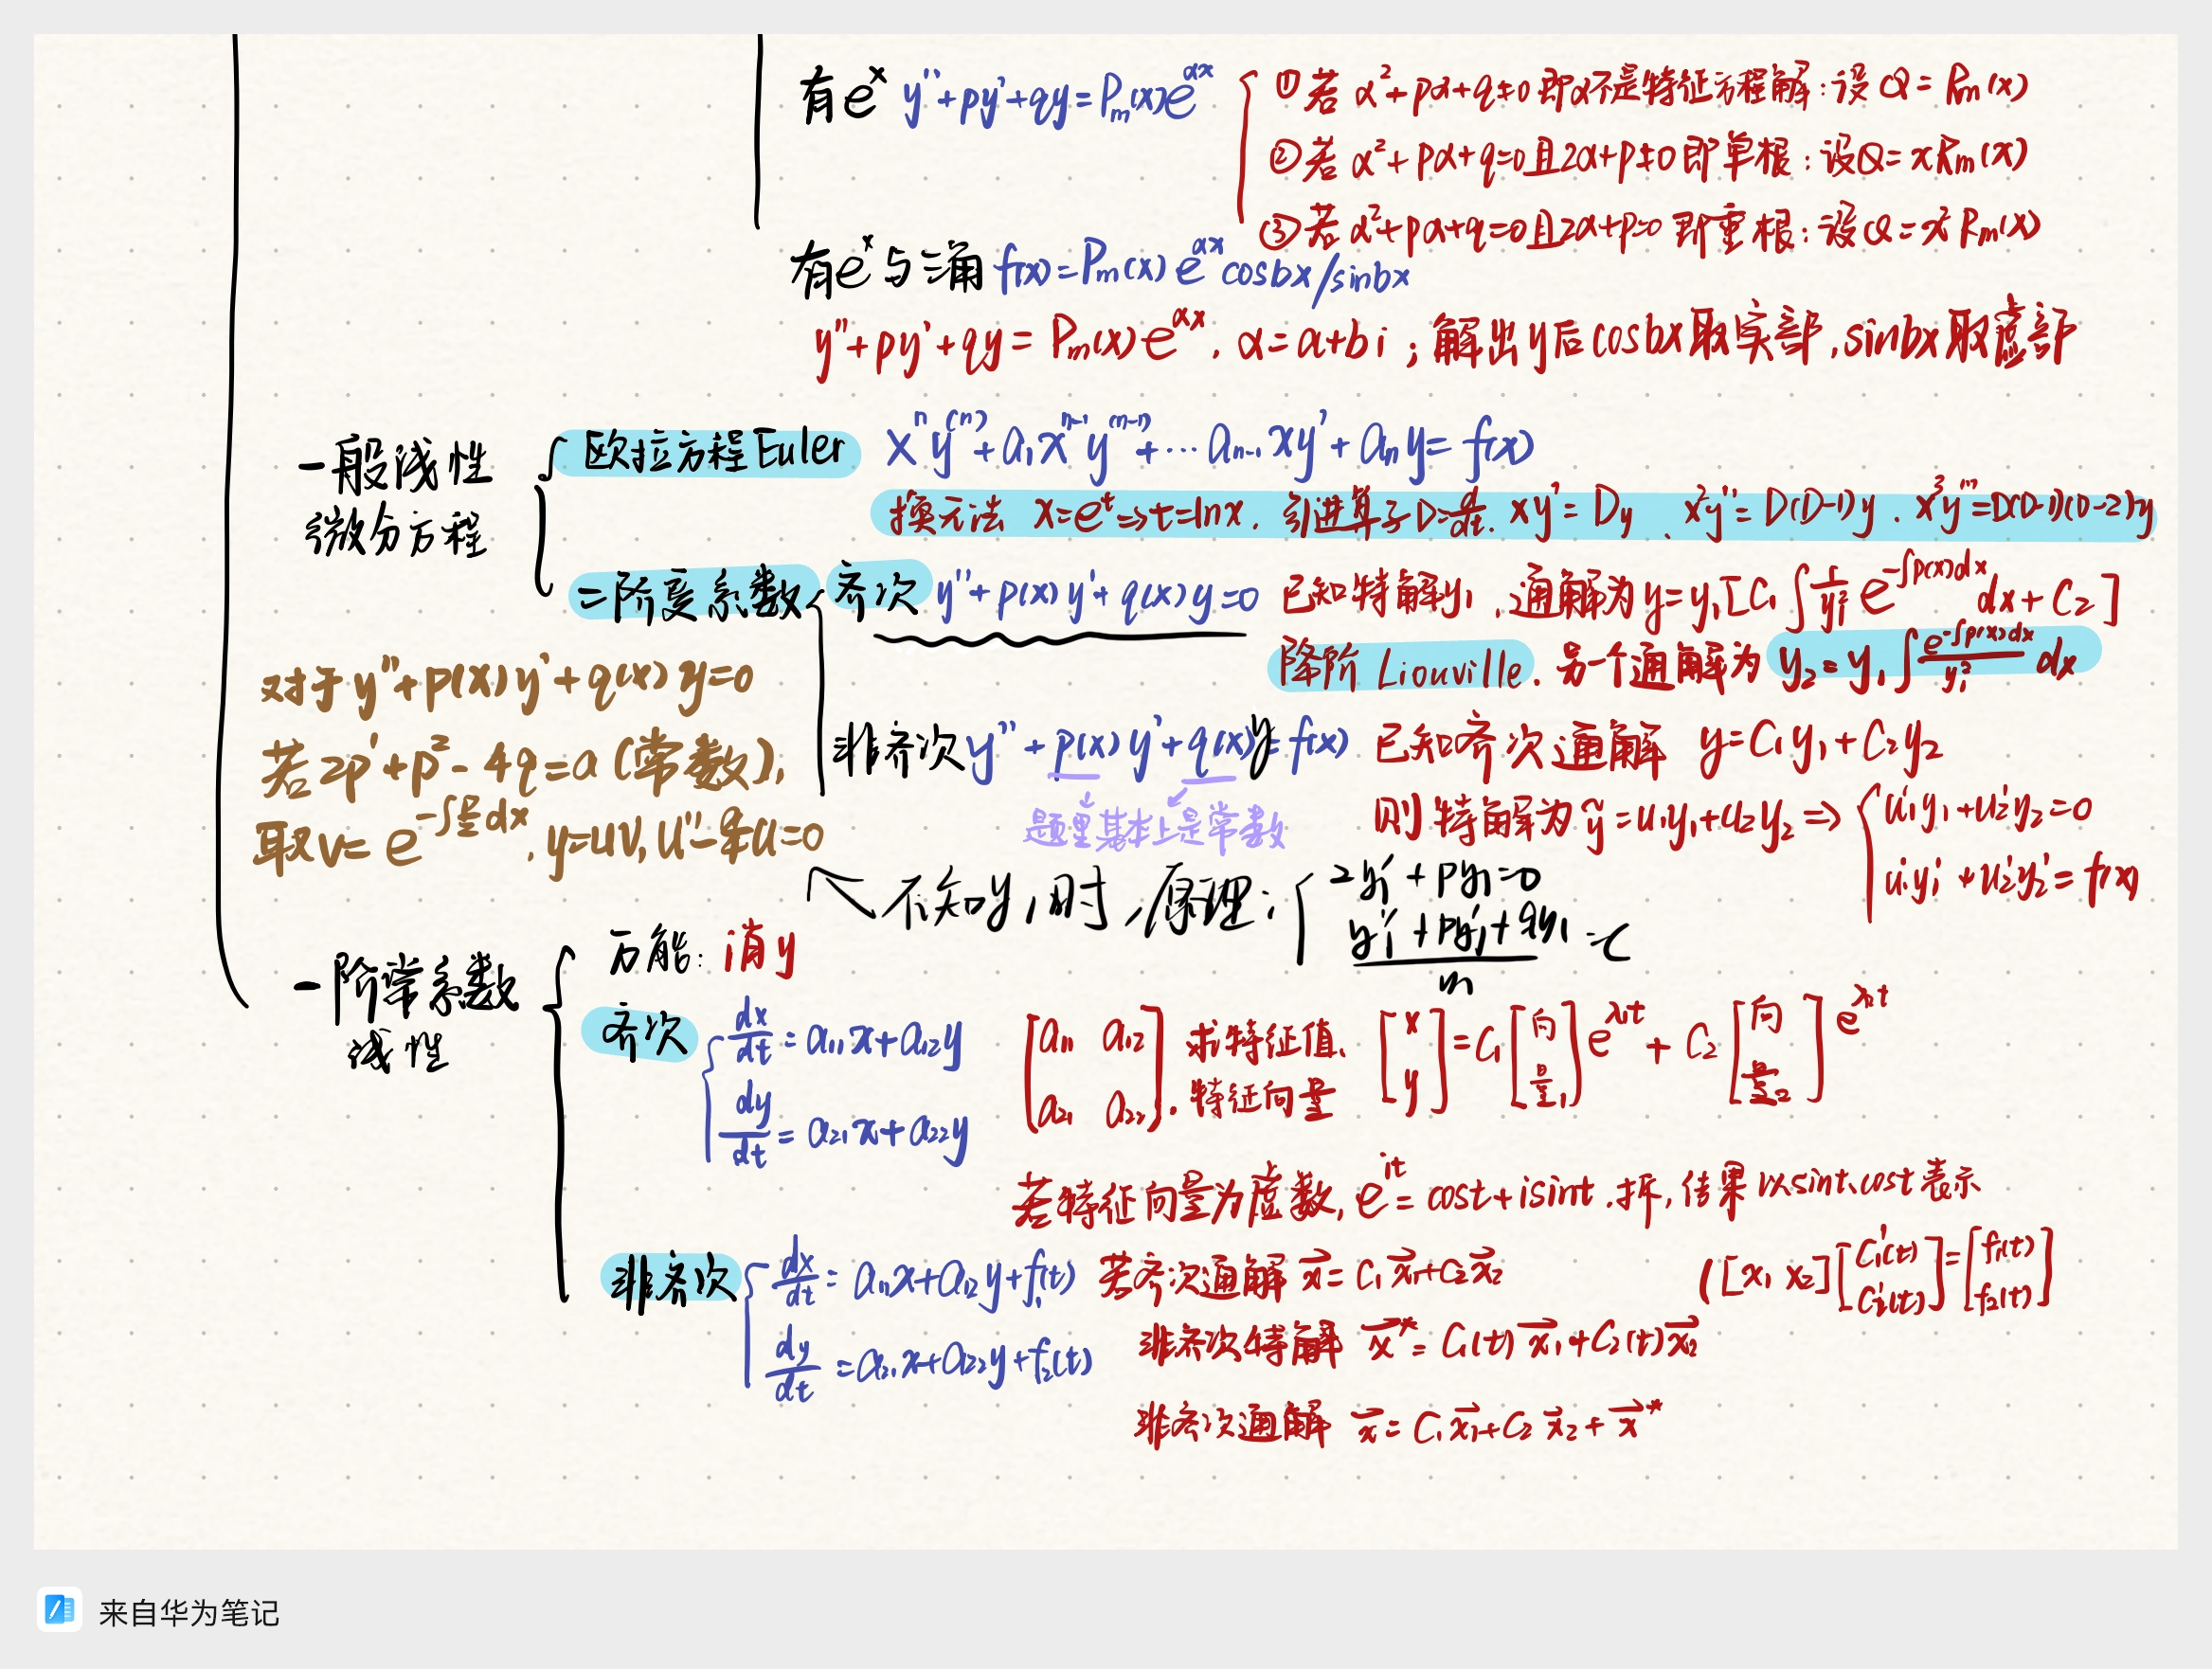 有eˣ y''+py'+qy=Pm(x)e^{αx}
①若 α²+pα+q≠0 即α不是特征方程解:设Q=Rm(x)
②若 α²+pα+q=0且2α+p≠0即单根:设Q=xRm(x)
③若 α²+pα+q=0且2α+p=0 即重根:设Q=x²Rm(x)
有eˣ与三角 f(x)=Pm(x)e^{αx}cosbx/sinbx
y''+py'+qy=Pm(x)e^{αx}, α=a+bi;解出y后cosbx取实部,sinbx取虚部
一般线性
微分方程
欧拉方程Euler xⁿy⁽ⁿ⁾+a₁xⁿ⁻¹y⁽ⁿ⁻¹⁾+…aₙ₋₁xy'+aₙy=f(x)
换元法 x=eᵗ=>t=lnx. 引进算子D=d/dt. xy'=Dy、x²y''=D(D-1)y.x³y'''=D(D-1)(D-2)y
二阶变系数 齐次 y''+p(x)y'+q(x)y=0 已知特解y₁,通解为y=y₁[C₁∫1/y₁² e^{-∫p(x)dx}dx+C₂]
降阶 Liouville. 另一个通解为 y₂=y₁∫e^{-∫p(x)dx}/y₁² dx
对于y''+p(x)y'+q(x)y=0
若2p'+p²-4q=a(常数),
取v=e^{-∫p/2 dx}, y=uv, u''-a/4u=0
非齐次y''+p(x)y'+q(x)y=f(x) 已知齐次通解 y=C₁y₁+C₂y₂
题里基本上是常数
则特解为ỹ=u₁y₁+u₂y₂=>{u₁'y₁+u₂'y₂=0
u₁'y₁'+u₂'y₂'=f(x)
不知y₁时,原理:{2y₁'+py₁=0
(y₁''+py₁'+qy₁)/m=c
一阶常系数
线性
万能:消y
齐次 dx/dt=a₁₁x+a₁₂y
dy/dt=a₂₁x+a₂₂y
[a₁₁ a₁₂
a₂₁ a₂₂].求特征值、
特征向量
[x y]=C₁[向量₁]e^{λ₁t}+C₂[向量₂]e^{λ₂t}
若特征向量为虚数,e^{it}=cost+isint.拆,结果以sint、cost表示
非齐次 dx/dt=a₁₁x+a₁₂y+f₁(t) 若齐次通解 x⃗=C₁x⃗₁+C₂x⃗₂
([x₁ x₂][C₁'(t) C₂'(t)]=[f₁(t) f₂(t)]
dy/dt=a₂₁x+a₂₂y+f₂(t) 非齐次特解 x⃗*=C₁(t)x⃗₁+C₂(t)x⃗₂
非齐次通解 x⃗=C₁x⃗₁+C₂x⃗₂+x⃗*
来自华为笔记